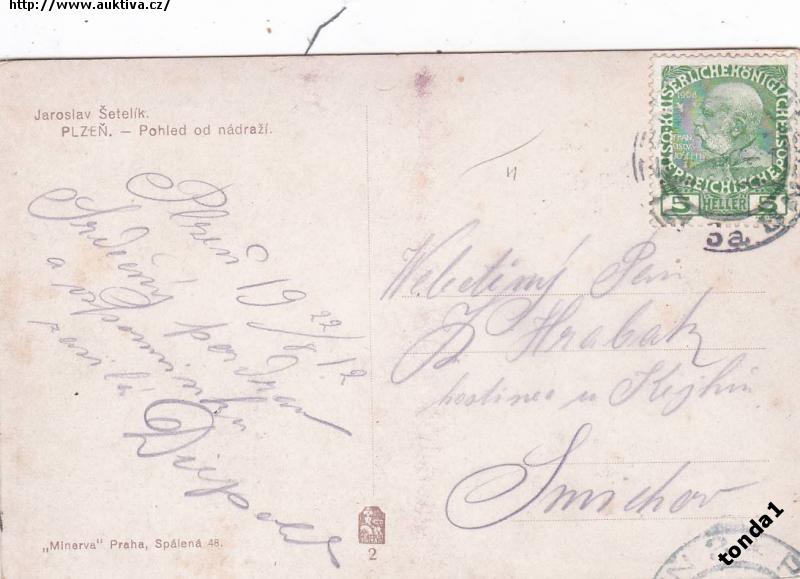 http://www.auktiva.cz/
Jaroslav Šetelík.
PLZEŇ. — Pohled od nádraží.
1908
KAISERLICHE KÖNIGLICHE
ÖSTERREICHISCHE
5 HELLER 5
Plzeň 19 22/8 12
Srdečný pozdrav
a vzpomínku
zasílá
Velectěný Pan
Hrabak
hostinec u
Smichov
„Minerva" Praha, Spálená 48.
2
tonda1